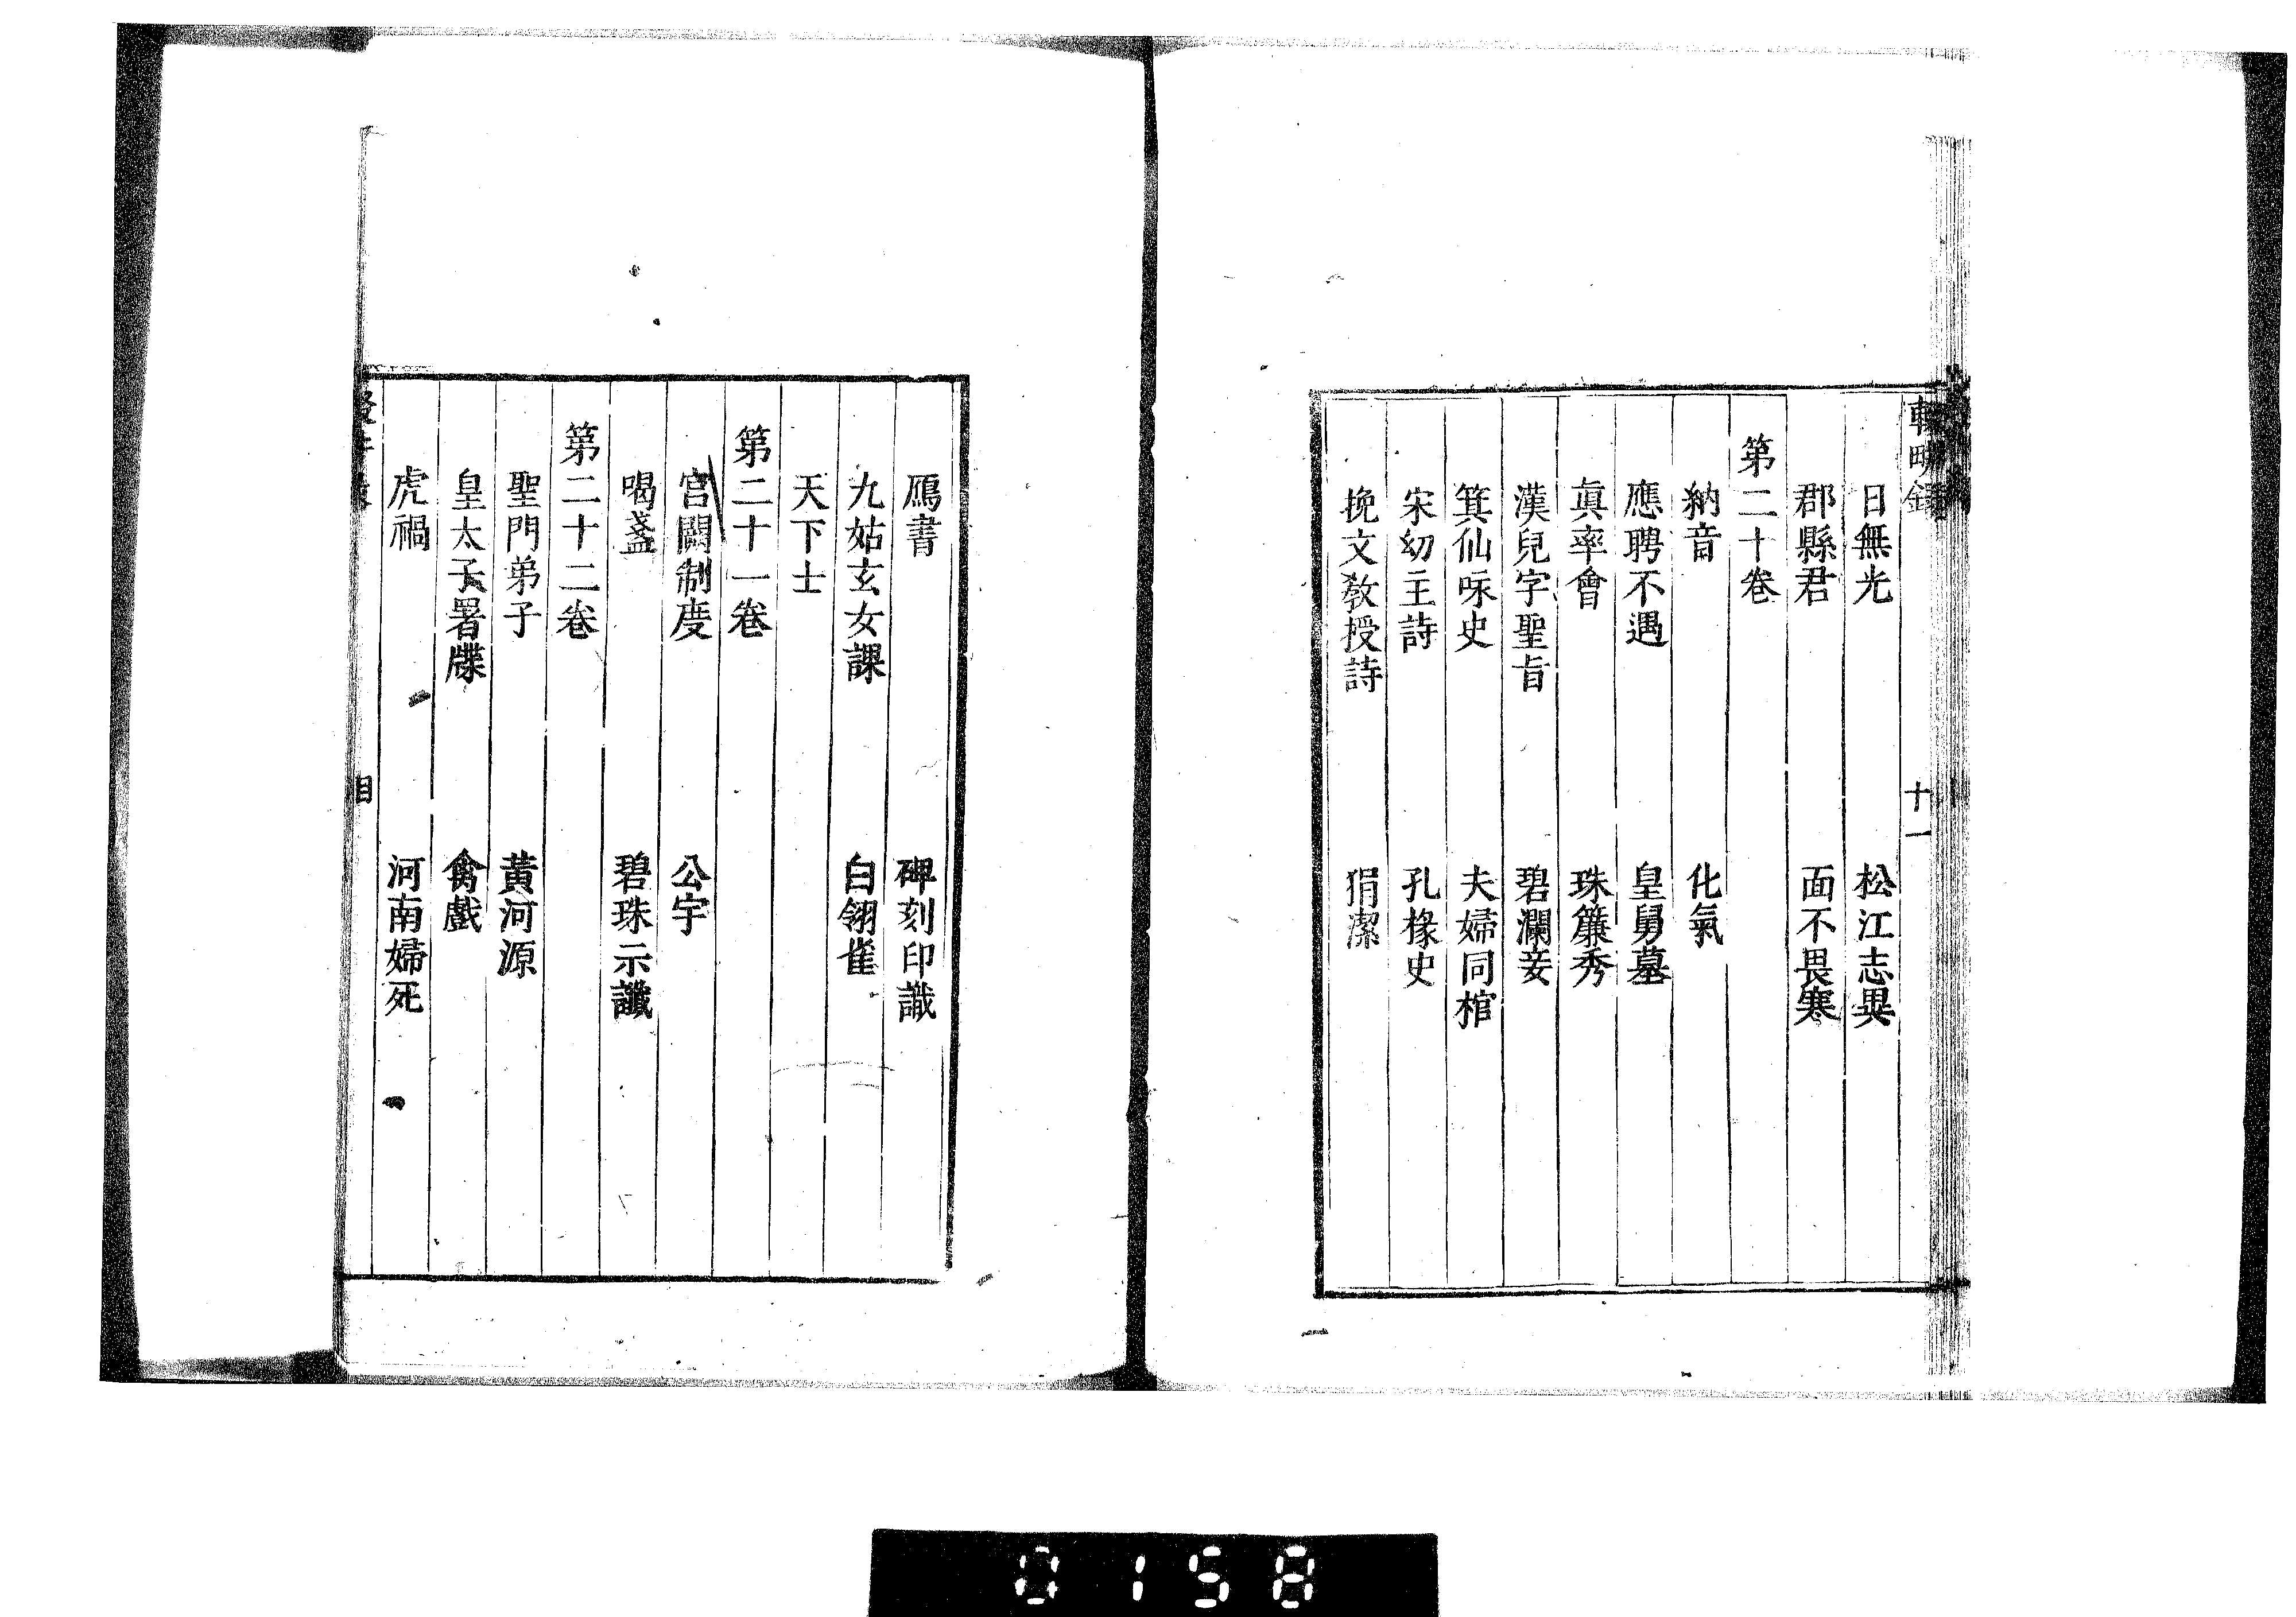 輟畊錄
十一
日無光 松江志異
郡縣君 面不畏寒
第二十卷
納音 化氣
應聘不遇 皇舅墓
眞率會 珠簾秀
漢兒字聖旨 碧瀾妾
箕仙咏史 夫婦同棺
宋幼主詩 孔椽史
挽文教授詩 狷潔
鴈書 碑刻印識
九姑玄女課 白翎雀
天下士
第二十一卷
宮闕制度 公宇
喝盞 碧珠示讖
第二十二卷
聖門弟子 黃河源
皇太子署牒 禽戲
虎禍 河南婦死
目
0158